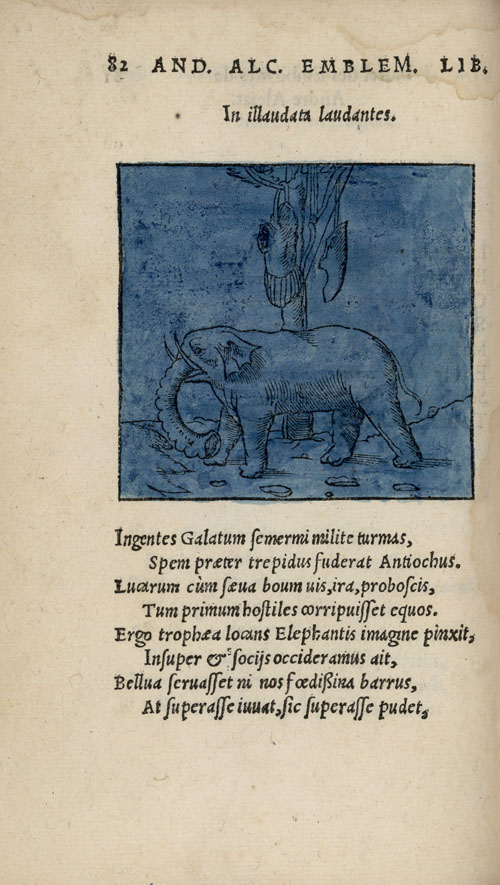 82 AND. ALC. EMBLEM. LIB.
In illaudata laudantes.
Ingentes Galatum semermi milite turmas,
Spem præter trepidus fuderat Antiochus.
Lucarum cùm sæua boum uis, ira, proboscis,
Tum primum hostiles corripuisset equos.
Ergo trophæa locans Elephantis imagine pinxit,
Insuper & socijs occideramus ait,
Bellua seruasset ni nos fœdißima barrus,
At superasse iuuat, sic superasse pudet,